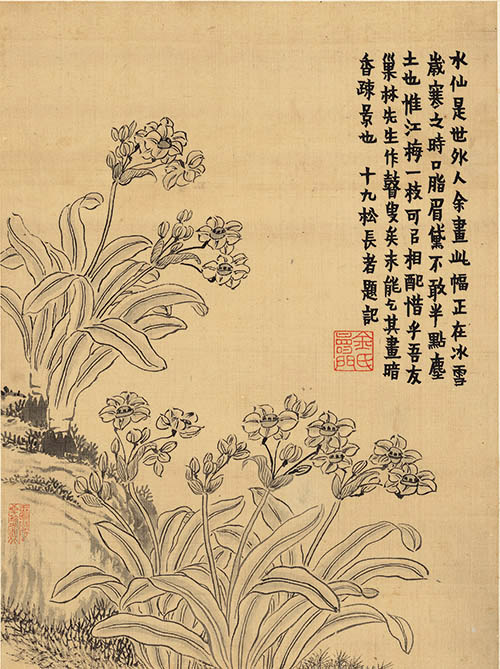 水仙是世外人余畫此幅正在冰雪
歲寒之時口脂眉黛不敢半點塵
土也惟江梅一枝可㠯相配惜乎吾友
巢林先生作瞽叟矣未能乞其畫暗
香疎景也　十九松長者題記
金氏